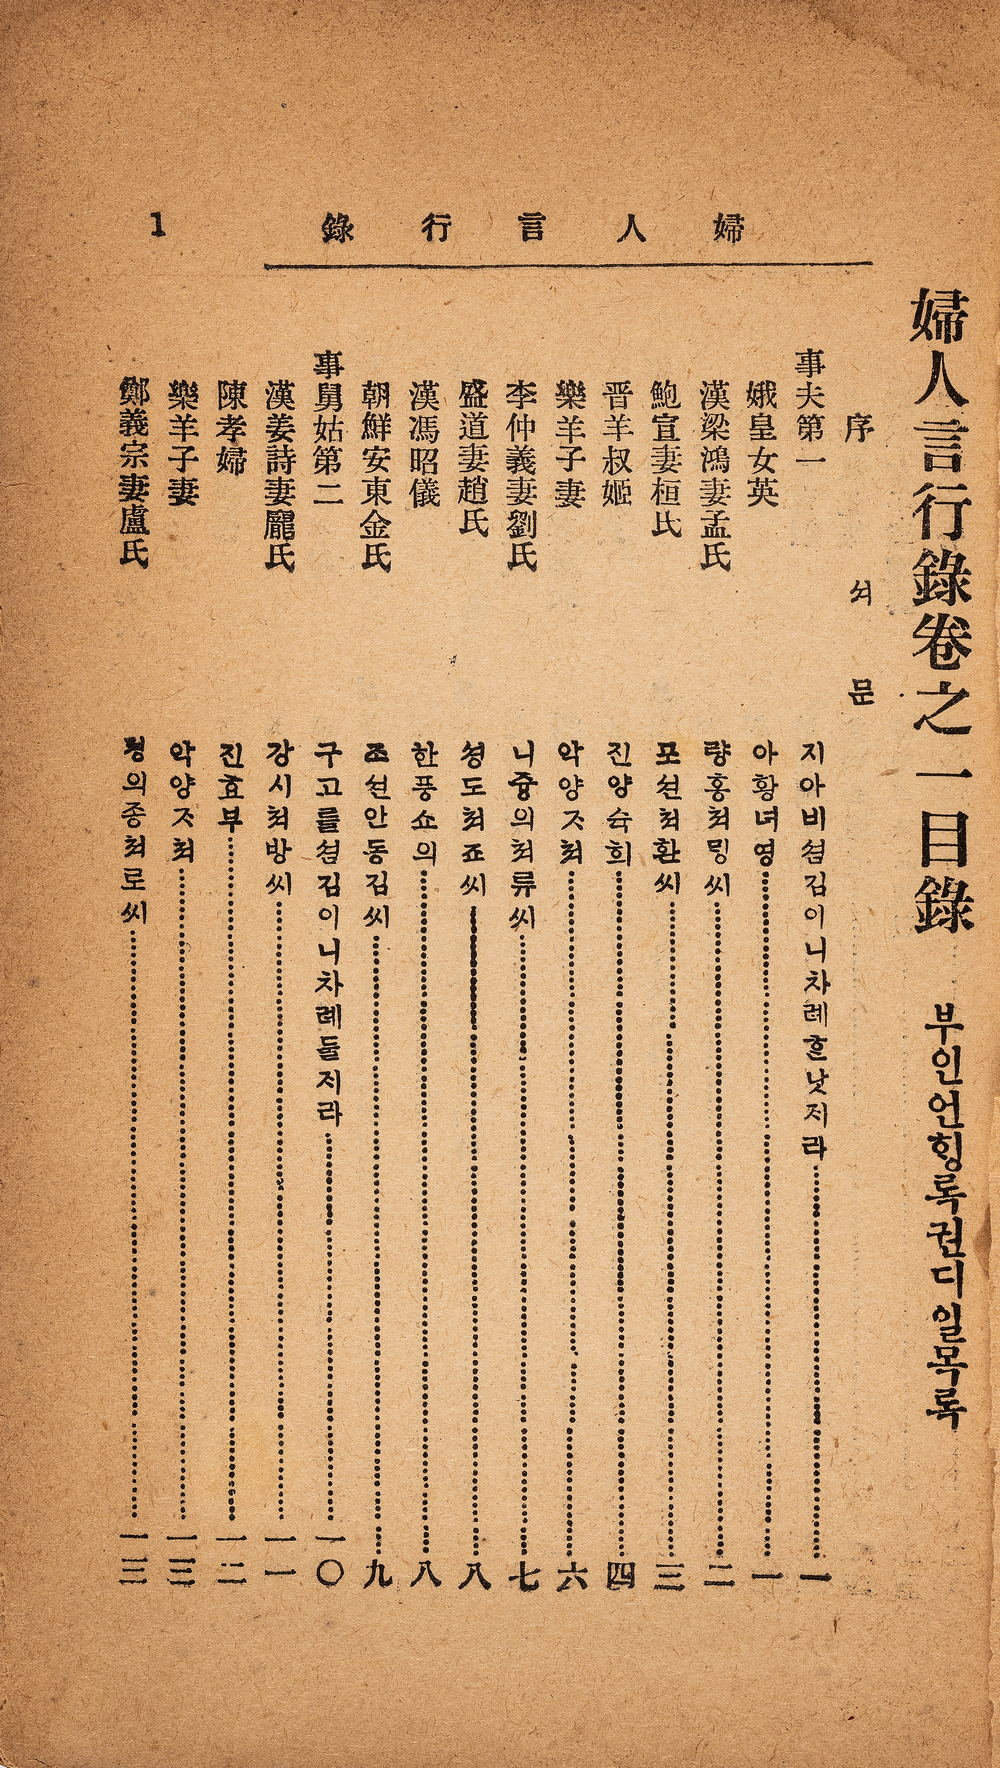 婦人言行錄 1
婦人言行錄卷之一目錄 부인언힝록권디일목록
序 셔문
事夫第一 지아비섬김이니차례흔낫지라 一
娥皇女英 아황녀영 一
漢梁鴻妻孟氏 량홍쳐밍씨 二
鮑宣妻桓氏 포션쳐환씨 三
晋羊叔姬 진양슉희 四
樂羊子妻 악양ᄌᆞ쳐 六
李仲義妻劉氏 니즁의쳐류씨 七
盛道妻趙氏 셩도쳐죠씨 八
漢馮昭儀 한풍쇼의 八
朝鮮安東金氏 죠션안동김씨 九
事舅姑第二 구고를섬김이니차례둘지라 一〇
漢姜詩妻龐氏 강시쳐방씨 一一
陳孝婦 진효부 一二
樂羊子妻 악양ᄌᆞ쳐 一三
鄭義宗妻盧氏 졍의종쳐로씨 一三